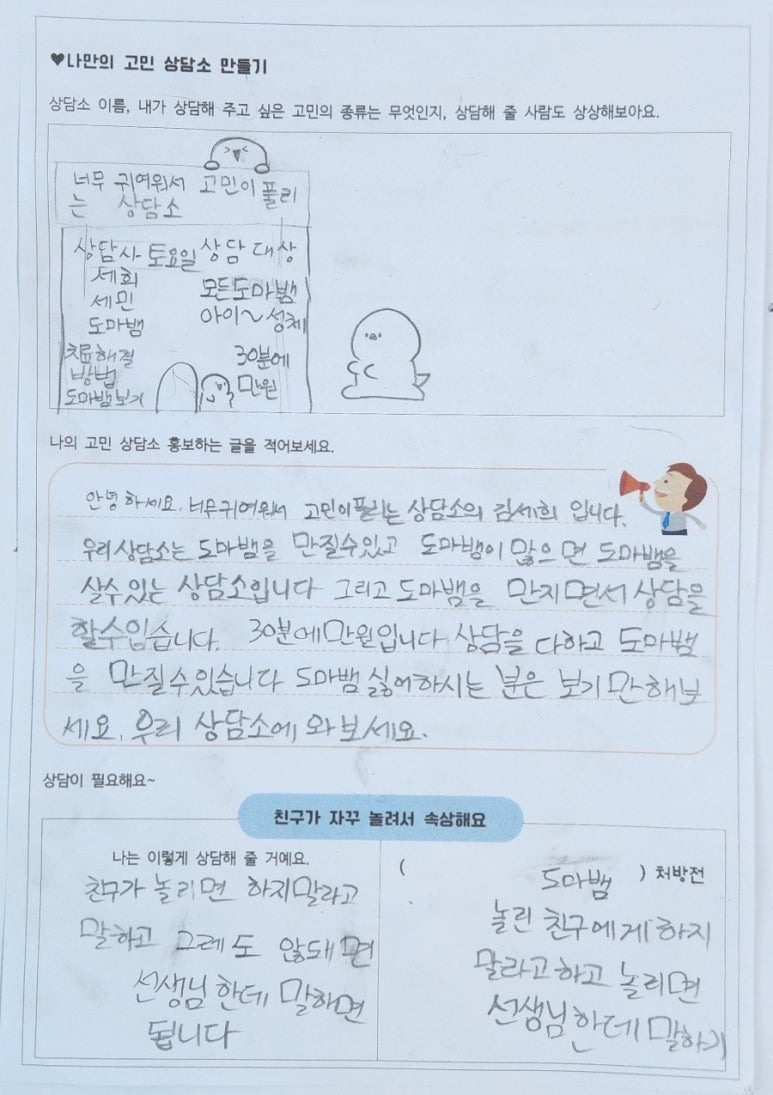 ♥나만의 고민 상담소 만들기
상담소 이름, 내가 상담해 주고 싶은 고민의 종류는 무엇인지, 상담해 줄 사람도 상상해보아요.
너무 귀여워서 고민이 풀리
는 상담소
상담사 토요일 상담 대상
세희
세민
도마뱀
모든도마뱀
아이~성체
치료해결
방법
도마뱀보기
30분에
만원
나의 고민 상담소 홍보하는 글을 적어보세요.
안녕하세요. 너무귀여워서 고민이풀리는 상담소의 김세희 입니다.
우리상담소는 도마뱀을 만질수있고 도마뱀이 많으면 도마뱀을
살수있는 상담소입니다 그리고 도마뱀을 만지면서 상담을
할수있습니다. 30분에만원입니다 상담을 다하고 도마뱀
을 만질수있습니다 도마뱀 싫어하시는 분은 보기만해보
세요. 우리 상담소에 와보세요.
상담이 필요해요~
친구가 자꾸 놀려서 속상해요
나는 이렇게 상담해 줄 거예요.
친구가 놀리면 하지말라고
말하고 그레도 않돼면
선생님한데 말하면
됩니다
( 도마뱀 ) 처방전
놀린 친구에게 하지
말라고하고 놀리면
선생님한데 말하기